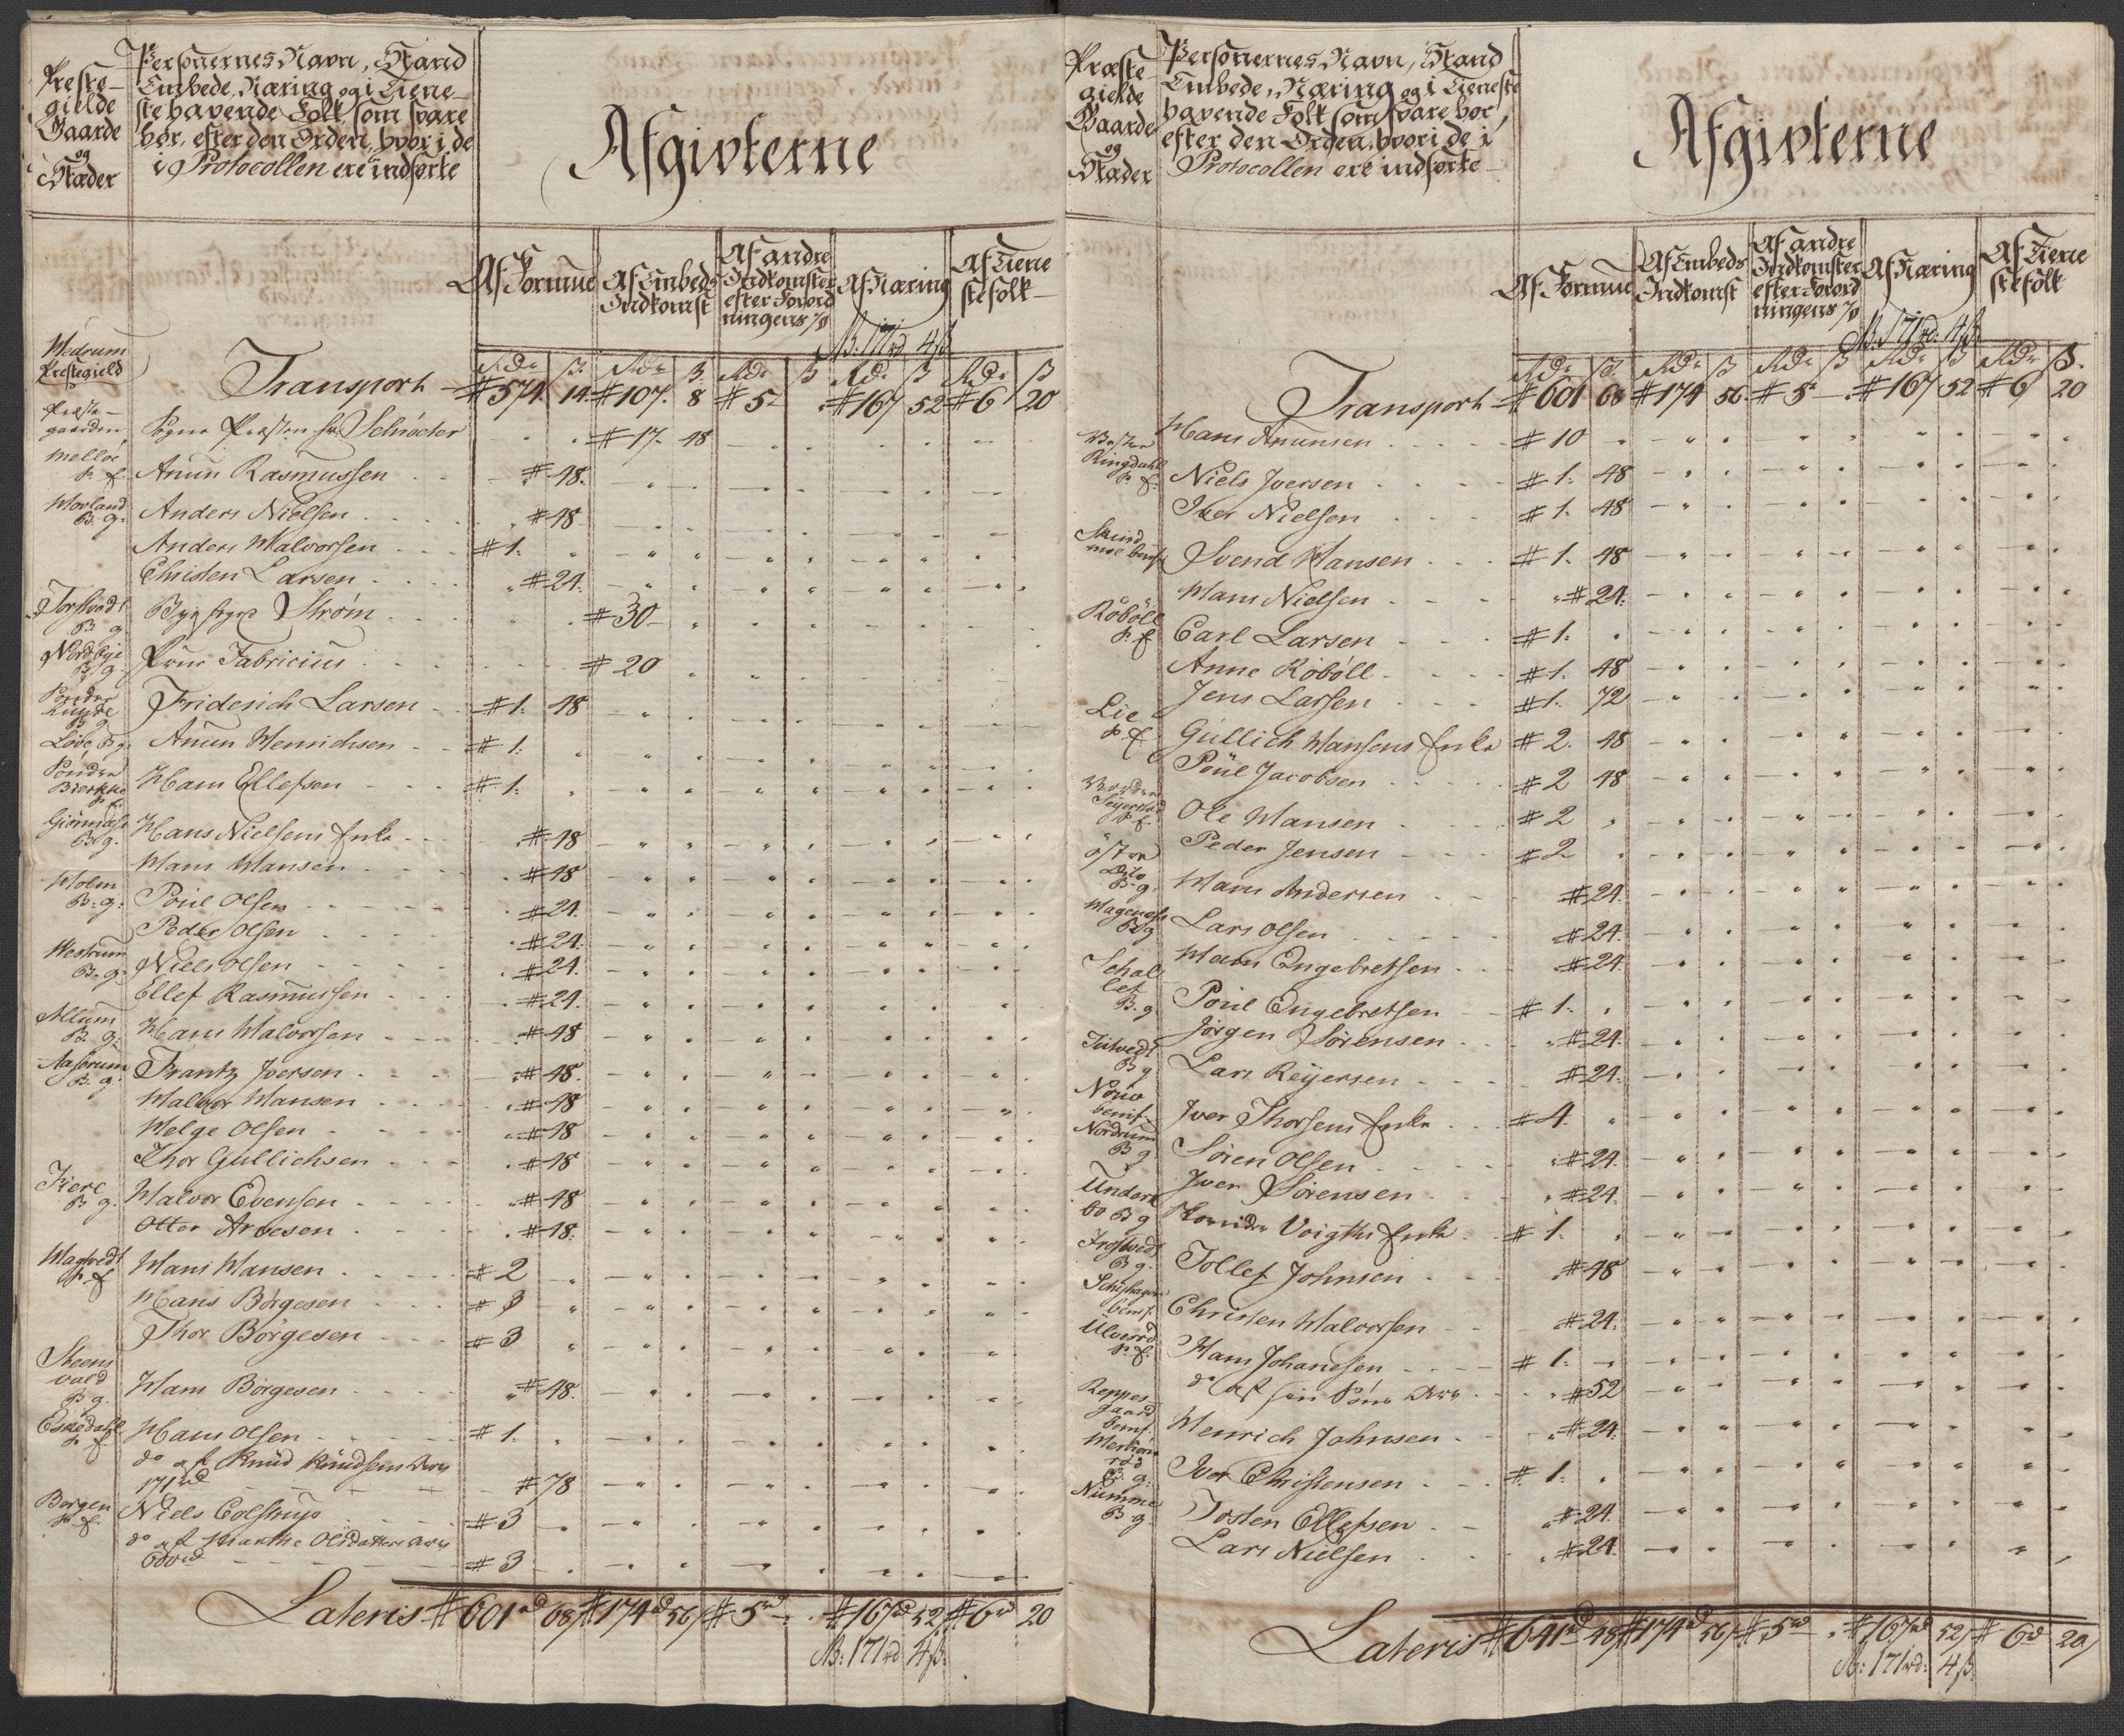 Preste-
gielde
Gaarde
og
Stæder
Personernes Navn, Stand
Embede, Næring og i Tiene-
ste havende Folk som svare
bør, efter den Orden, hvor i de
i Protocollen ere indførte
Afgivterne
Af Formue
Af Embeds Indkomst
Af andre Indkomster efter Forordningens
Af Næring
Af Tiene ste folk
NB: 171 rd 4 ß
Hedrum Prestegield
Rdr ß Rdr ß Rdr ß Rdr ß Rdr ß
Transport # 574. 14. # 107. 8 # 5 - # 167 52 # 6 20
Præste-gaarden Sogne Præsten hr. Schiøcter # 17. 48
Melløe Anun Rasmussen # 48.
Hovland B. g. Anders Nielsen # 48
Anders Halvorsen # 1.
Christen Larsen # 24.
B g Strøm # 30
Nordbye B g. Fabricius # 20
Friderich Larsen # 1. 48
B g. Anun Henrichsen # 1.
Søndre Hans Ellefsen # 1.
B g. Hans Nielsens Enke # 48
Hans Hansen # 48
Holm B. g. Poul Olsen # 24.
Peder Olsen # 24.
Hestrum B. g. Niels Olsen # 24.
Ellef Rasmussen # 24.
Allum B. g. Hans Halvorsen # 48
Aasrum B. g. Frantz Jversen # 48.
Halvor Hansen # 48
Helge Olsen # 48
Thor Gullichsen # 48
B g. Halvor Evensen # 48
Otter Arvesen # 48.
Hagtvedt Hans Hansen # 2
Hans Børgesen # 3
Thor Børgesen # 3
Steens vald B g. Hans Børgesen # 48.
Eskedahl Hans Olsen # 1.
do af Knud Knudsens Arv
171 rd # 78
Borgen Niels Colstrup # 3
do af Marthe Olsdatters Arv
600 rd # 3
Lateris # 601 rd 68 # 174 rd 56 # 5 rd # 167 rd 52 # 6 rd 20
NB: 171 rd 4 ß.
Præste-
gielde
Gaarde
og
Stæder
Personernes Navn, Stand
Embede, Næring og i Tieneste
havende Folk som svare bør,
efter den Orden, hvor i de i
Protocollen ere indførte
Afgivterne
Af Formue
Af Embeds Indkomst
Af andre Indkomster efter Forordningens
Af Næring
Af Tiene ste folk
NB. 171 rd. 4 ß.
Rdr ß. Rdr ß Rdr ß Rdr ß Rdr ß.
Transport # 601 68 # 174 56 # 5 - # 167 52 # 6 20
Hans Anunsen # 10
Ringdahl Niels Jversen # 1. 48
Iver Nielsen # 1. 48
Svend Hansen # 1. 48
Hans Nielsen # 24.
Røbøll Carl Larsen # 1.
Anne Røbøll # 1. 48
Jens Larsen # 1. 72
Lie Gullich Hansens Enke # 2. 48
Poul Jacobsen # 2 48
Ole Hansen # 2
Peder Jensen # 2
østre B. g. Hans Andersen # 24.
B g Lars Olsen # 24.
Hans Engebretsen # 24.
B. g Poul Engebretsen # 1.
Jørgen Sørensen # 24.
B g Lars Reyersen # 24.
Jver Thorsens Enke # 4.
Nordrum B g Søren Olsen # 24.
Jver Sørensen # 24.
B g Voigths Enke # 1.
B g. Tollef Johnsen # 48
Christen Halvorsen # 24.
Hans Johansen # 1.
do af sin Søns Arv # 52
Henrich Johnsen # 24.
B. g. Iver Christensen # 1.
Numme B g. Tosten Ellefsen # 24.
Lars Nielsen # 24.
Lateris # 641 rd 48 # 174 rd 56 # 5 rd # 167 rd 52 # 6 rd 20
NB: 171 rd: 4 ß.